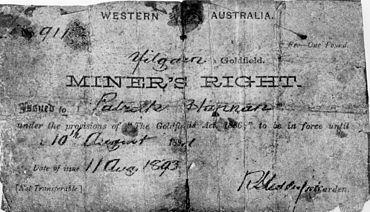 WESTERN AUSTRALIA.
911
Fee—One Pound.
Yilgarn Goldfield.
MINER'S RIGHT.
Issued to Patrick Hannan
under the provisions of "The Goldfields Act, 1886," to be in force until
10th August 1894
Date of issue 11 Aug 1893
Warden.
[Not Transferable]